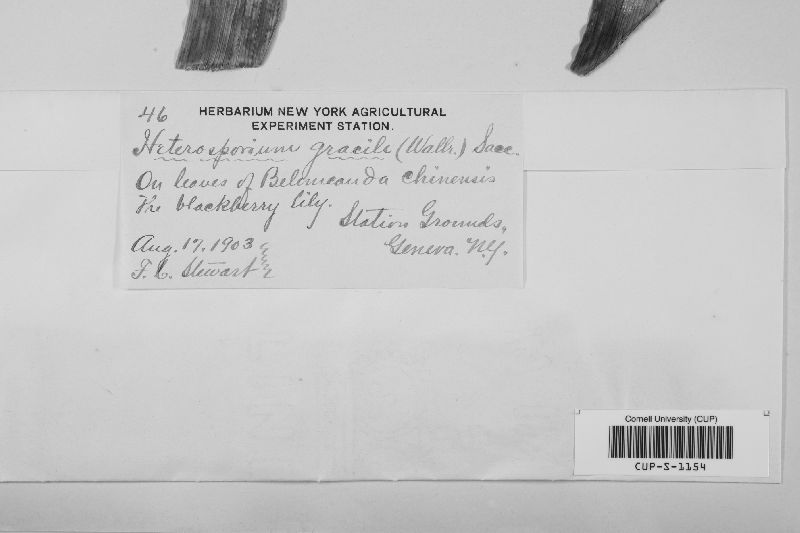 46 HERBARIUM NEW YORK AGRICULTURAL
EXPERIMENT STATION.
Heterosporium gracile (Wallr.) Sacc.
On leaves of Belemcanda chinensis
The blackberry lily.
Station Grounds,
Aug. 17, 1903
Geneva. N.Y.
F. C. Stewart
Cornell University (CUP)
CUP-S-1154